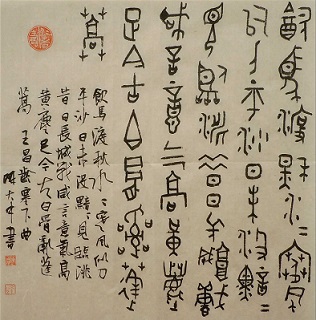 飲馬渡秋水〻寒風
似刀平沙日未没黯〻
見臨洮昔日長城戰
咸言意气高黄塵
足今古白骨亂蓬
蒿
飲馬渡秋水〻寒風似刀
平沙日未没黯〻見臨洮
昔日長城戰咸言意氣高
黄塵足今古白骨亂蓬
蒿 王昌齡塞下曲